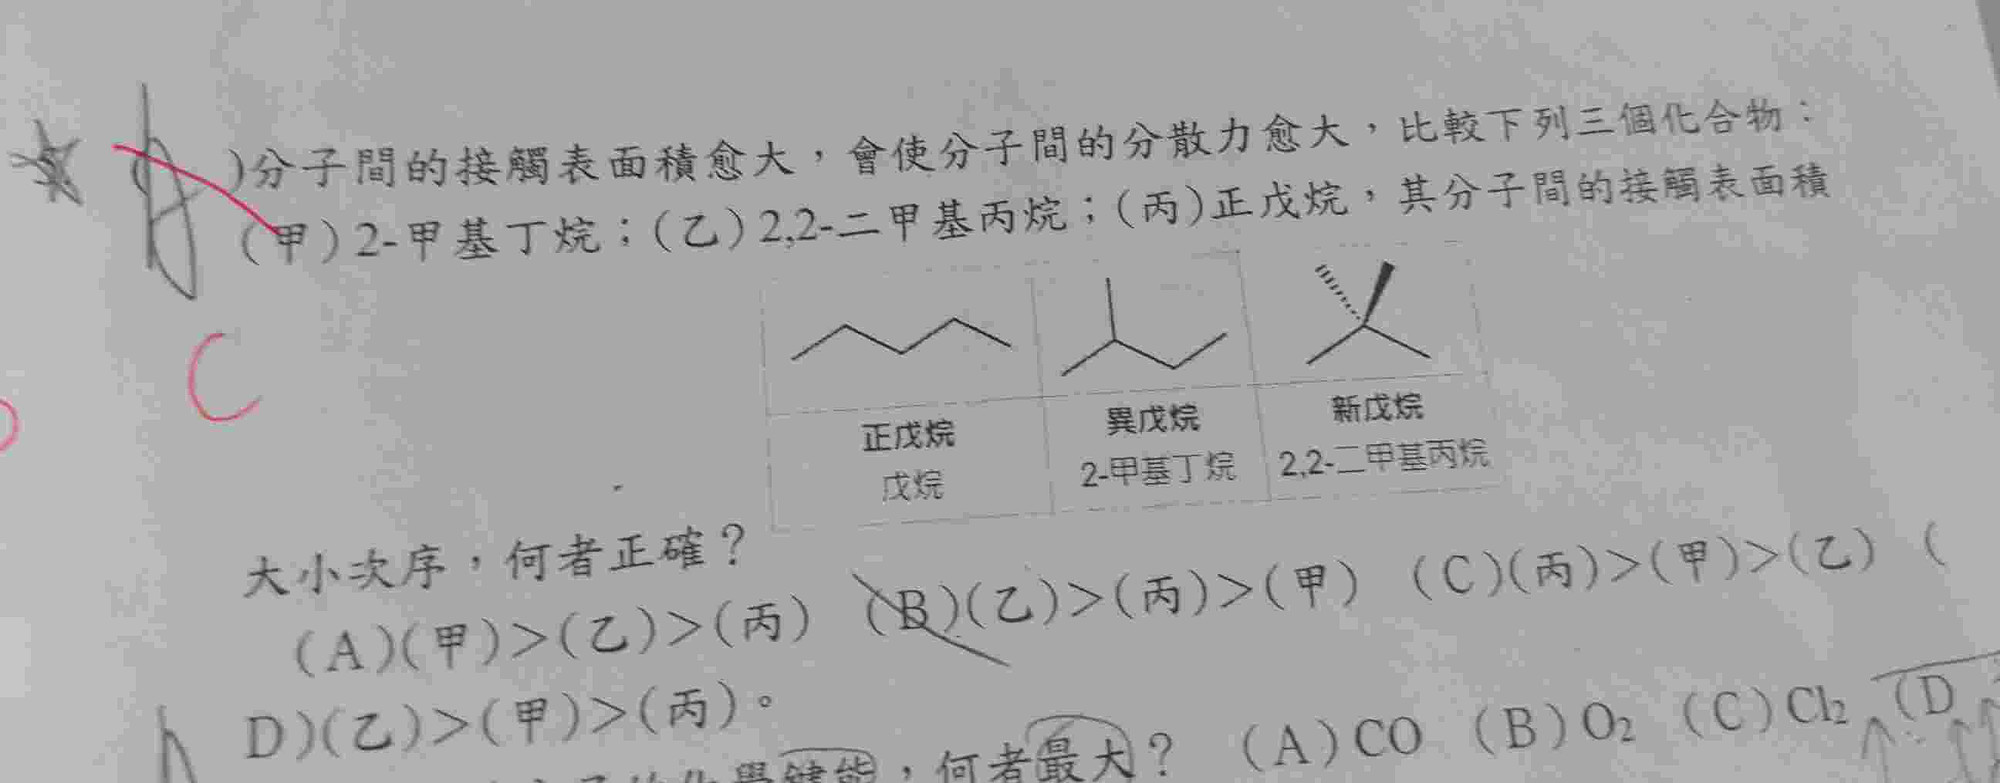 )分子間的接觸表面積愈大，會使分子間的分散力愈大，比較下列三個化合物：
(甲)2-甲基丁烷；(乙)2,2-二甲基丙烷；(丙)正戊烷，其分子間的接觸表面積
C
正戊烷 異戊烷 新戊烷
戊烷 2-甲基丁烷 2,2-二甲基丙烷
大小次序，何者正確？
(A)(甲)>(乙)>(丙) (B)(乙)>(丙)>(甲) (C)(丙)>(甲)>(乙) (
D)(乙)>(甲)>(丙)。
學鍵能，何者最大？ (A)CO (B)O₂ (C)Cl₂ (D